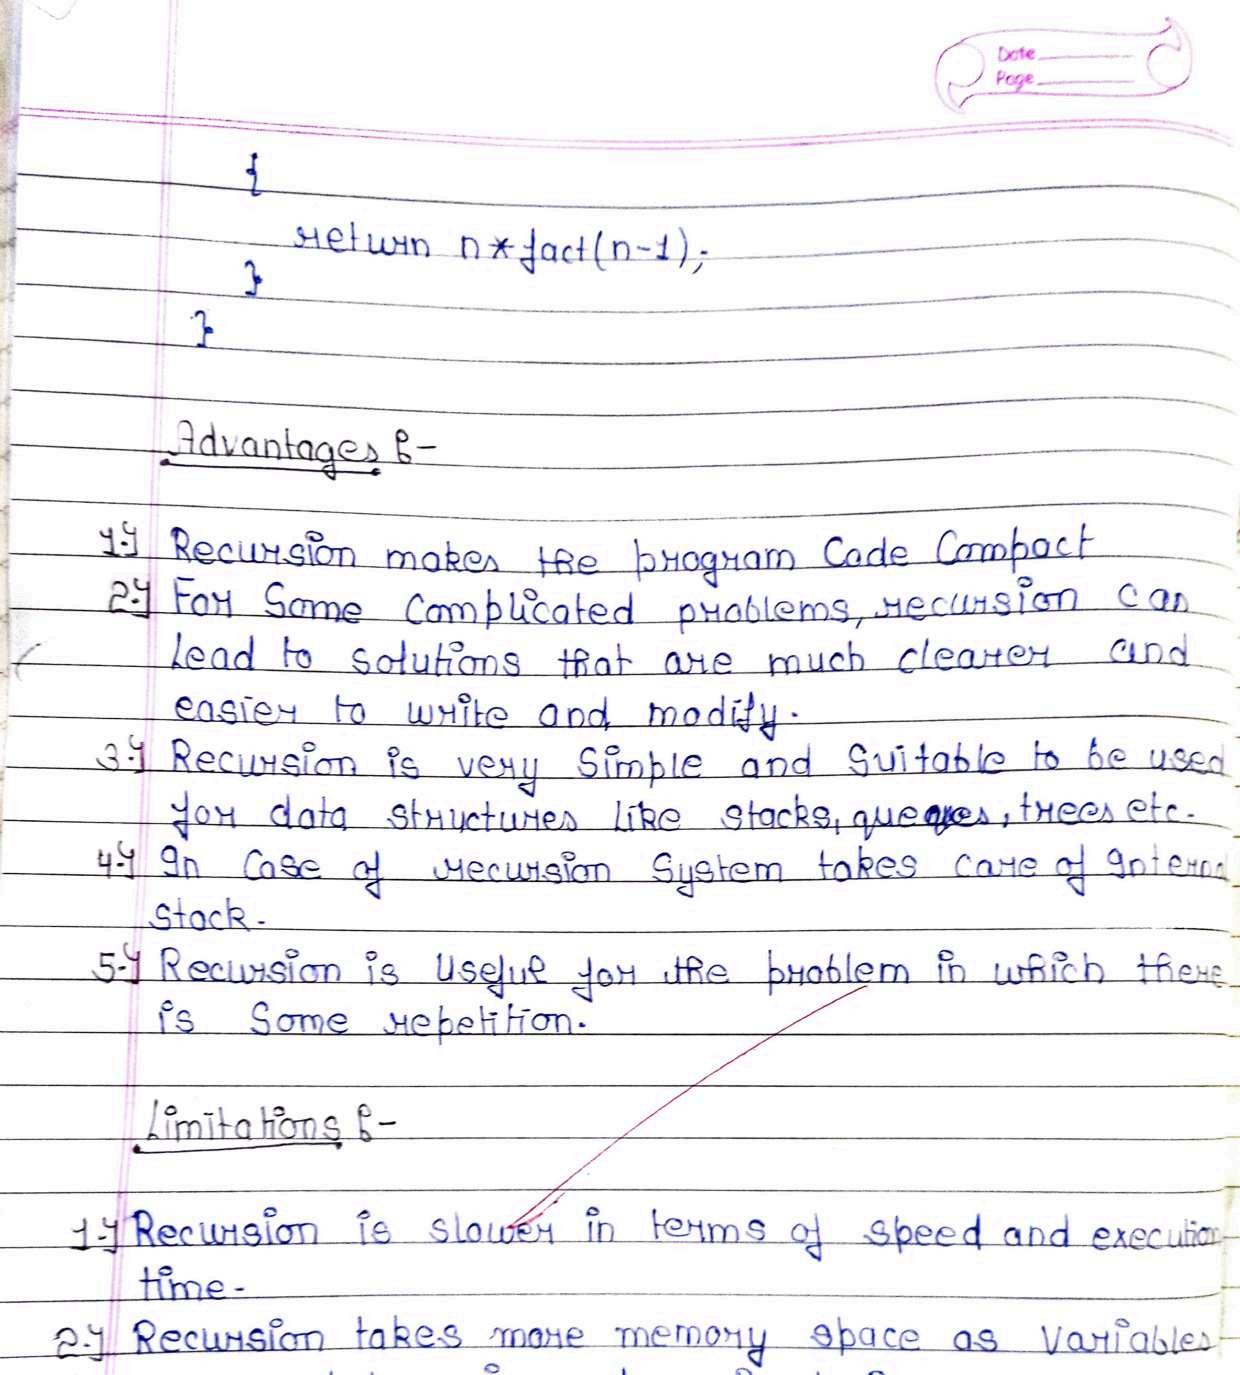 Date
Page
{
return n*fact(n-1);
}
}
Advantages :-
1.) Recursion makes the program Code Compact
2.) For Some Complicated problems, recursion can
lead to solutions that are much clearer and
easier to write and modify.
3.) Recursion is very Simple and Suitable to be used
for data structures like stacks, queues, trees etc.
4.) In Case of recursion System takes care of Internal
stack.
5.) Recursion is Useful for the problem in which there
is Some repetition.
Limitations :-
1.) Recursion is slower in terms of speed and execution
time.
2.) Recursion takes more memory space as Variables